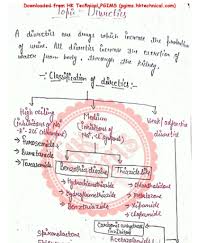 Downloaded from HK Technical PGIMS (pgims.hktechnical.com)
Topic - Diuretics
A diuretics are drugs which increase the production
of urine. All diuretics increase the excretion of
water from body, through the kidney.
Classification of diuretics :-
High ceiling
(inhibitors of Na+
-K+-2Cl- cotransport)
→ Furosemide
→ Bumetanide
→ Torasemide
Medium
(inhibitors of
Na+, Cl- symport)
Benzothiadiazine
→ Hydrochlorothiazide
Thiazide like
→ Chlorthalidone
→ Metolazone
→ Xipamide
→ Clopamide
Weak / adjunctive
diuretics
Carbonic anhydrase
Spironolactone